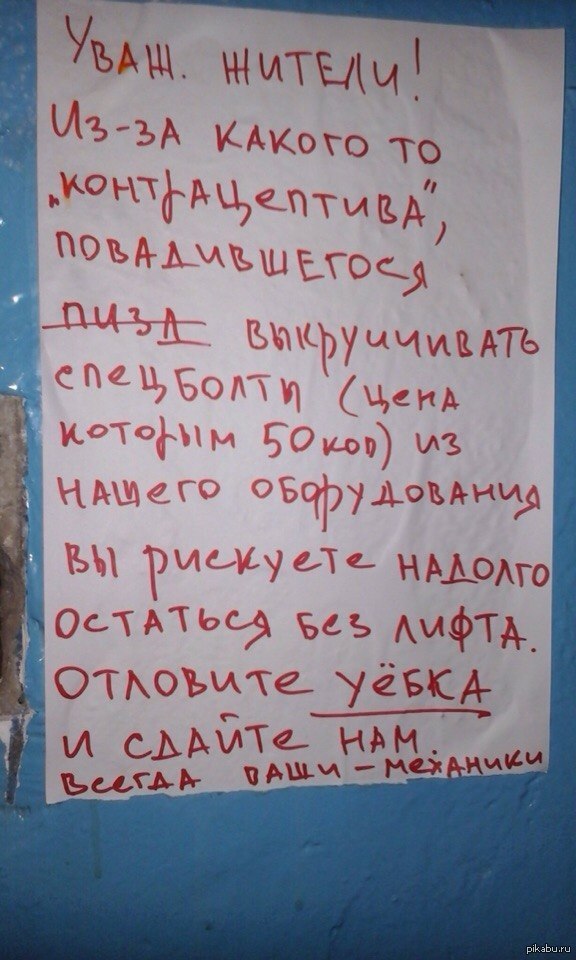 Уваж. жители!
Из-за какого то
„контрацептива",
повадившегося
пизд выкручивать
спецболты (цена
которым 50 коп) из
нашего оборудования
вы рискуете надолго
остаться без лифта.
Отловите уёбка
и сдайте нам
всегда ваши – механики
pikabu.ru